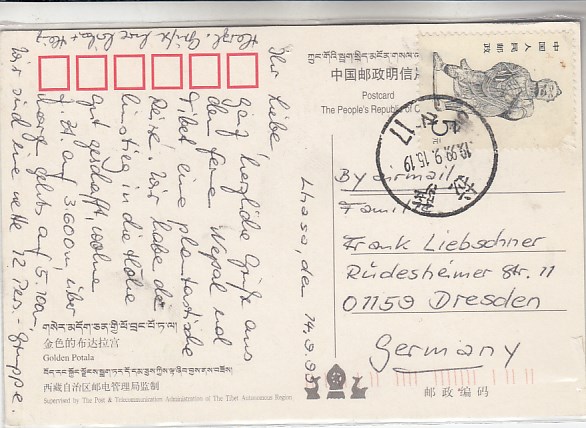 Lhasa, den 14.9.99
Ihr Lieben,
ganz herzliche Grüße aus
dem fernen Nepal und
Tibet eine phantastische
Reise. Wir haben den
Einstieg in die Höhe
gut geschafft, wohne
z. Zt. auf 3600 m, über
morgen geht's auf 5.100,-
Wir sind eine nette 12 Pers.-Gruppe.
Herzl. Grüße Eure
中国人民邮政
中国邮政明信片
Postcard
The People's Republic of C
1999.9.15.19
17
By airmail
Familie
Frank Liebschner
Rüdesheimer Str. 11
01159 Dresden
Germany
邮政编码
གསེར་མདོག་ཅན་གྱི་ཕོ་བྲང་པོ་ཏ་ལ།
金色的布达拉宫
Golden Potala
西藏自治区邮电管理局监制
Supervised by The Post & Telecommunication Administration of The Tibet Autonomous Region